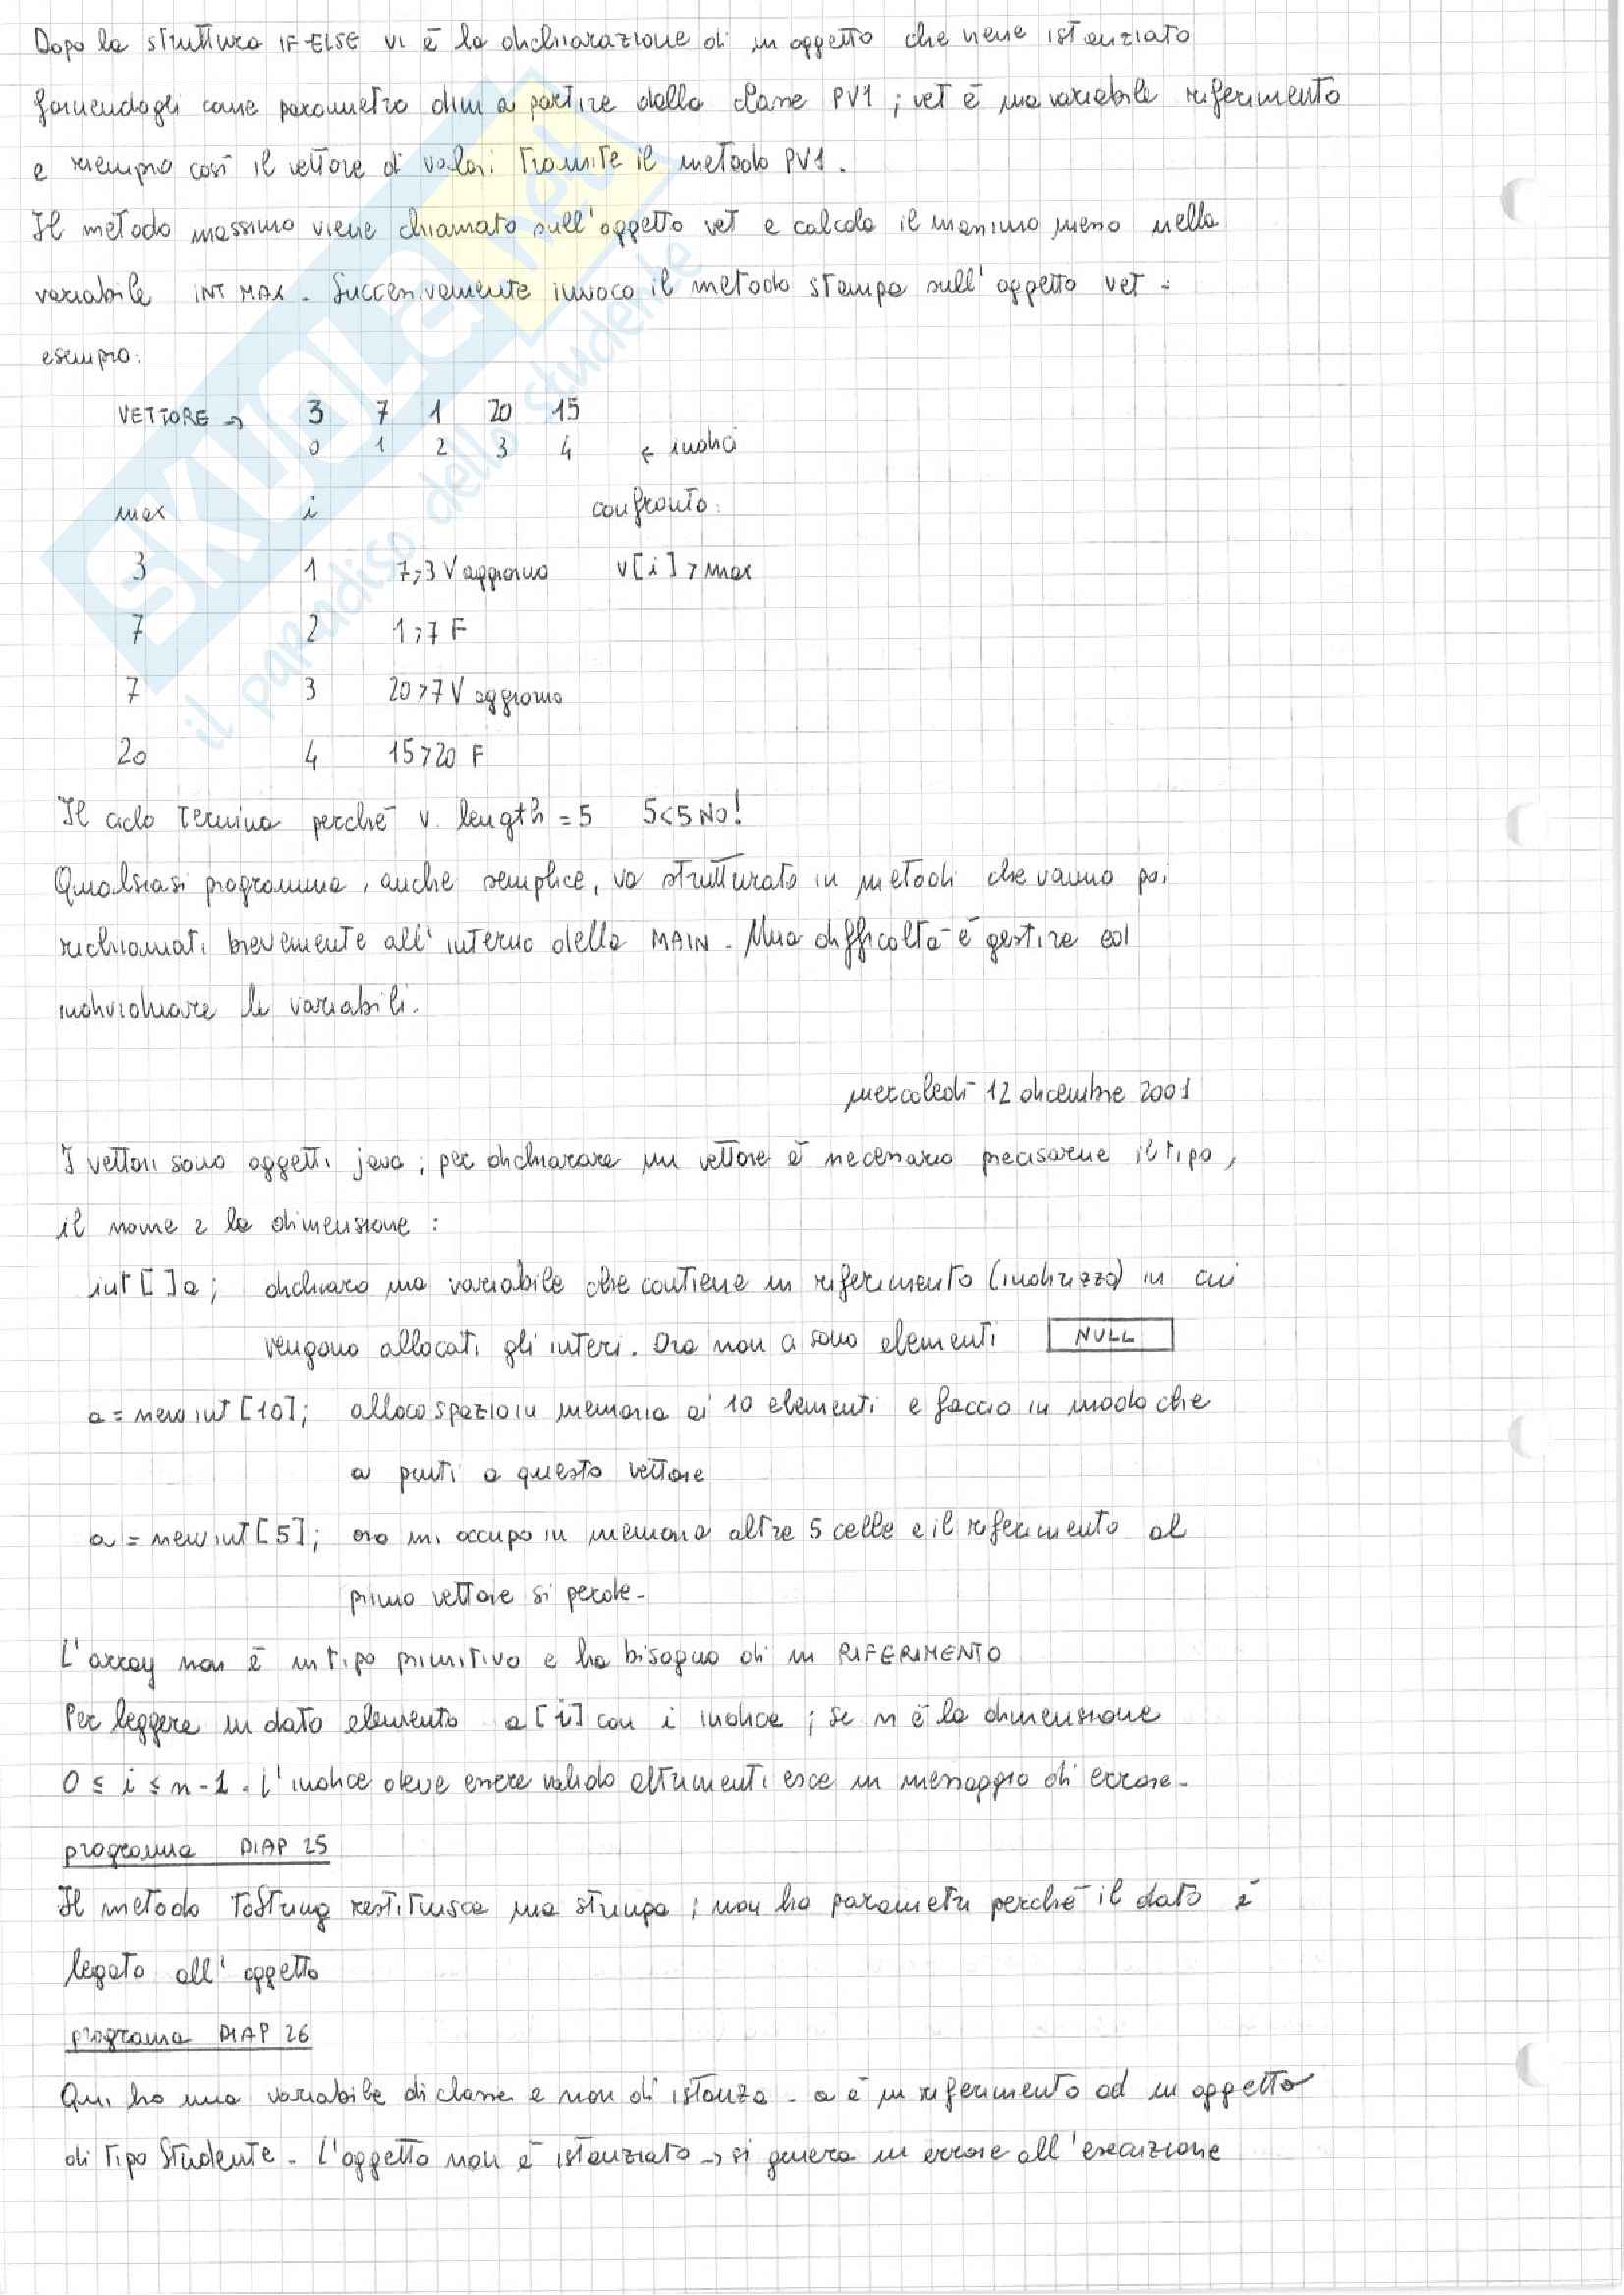 Dopo la struttura IF-ELSE vi è la dichiarazione di un oggetto che viene istanziato
fornendogli come parametro dim a partire dalla classe PV1 ; vet è una variabile riferimento
e riempio così il vettore di valori tramite il metodo PV1.
Il metodo massimo viene chiamato sull'oggetto vet e calcola il massimo messo nella
variabile INT MAX. Successivamente invoco il metodo stampa sull'oggetto vet.
esempio:
VETTORE → 3 7 1 20 15
0 1 2 3 4 ← indici
max i confronto:
3 1 7>3 V aggiorno v[i]>max
7 2 1>7 F
7 3 20>7 V aggiorno
20 4 15>20 F
Il ciclo termina perché v. length = 5 5<5 NO!
Qualsiasi programma, anche semplice, va strutturato in metodi che vanno poi
richiamati brevemente all'interno della MAIN. Una difficoltà è gestire ed
individuare le variabili.
mercoledì 12 dicembre 2001
I vettori sono oggetti java ; per dichiarare un vettore è necessario precisarne il tipo,
il nome e la dimensione :
int [ ] a ; dichiaro una variabile che contiene un riferimento (indirizzo) in cui
vengono allocati gli interi. Ora non ci sono elementi NULL
a = new int [10]; alloco spazio in memoria ai 10 elementi e faccio in modo che
a punti a questo vettore
a = new int [5]; ora mi occupo in memoria altre 5 celle e il riferimento al
primo vettore si perde.
L'array non è un tipo primitivo e ha bisogno di un RIFERIMENTO
Per leggere un dato elemento a[i] con i indice ; se n è la dimensione
0 ≤ i ≤ n-1. L'indice deve essere valido altrimenti esce un messaggio di errore.
programma DIAP 25
Il metodo ToString restituisce una stringa ; non ha parametri perché il dato è
legato all'oggetto
programma DIAP 26
Qui ho una variabile di classe e non di istanza. a è un riferimento ad un oggetto
di tipo Studente. L'oggetto non è istanziato → si genera un errore all'esecuzione
SKUOLA.net
il paradiso dello studente